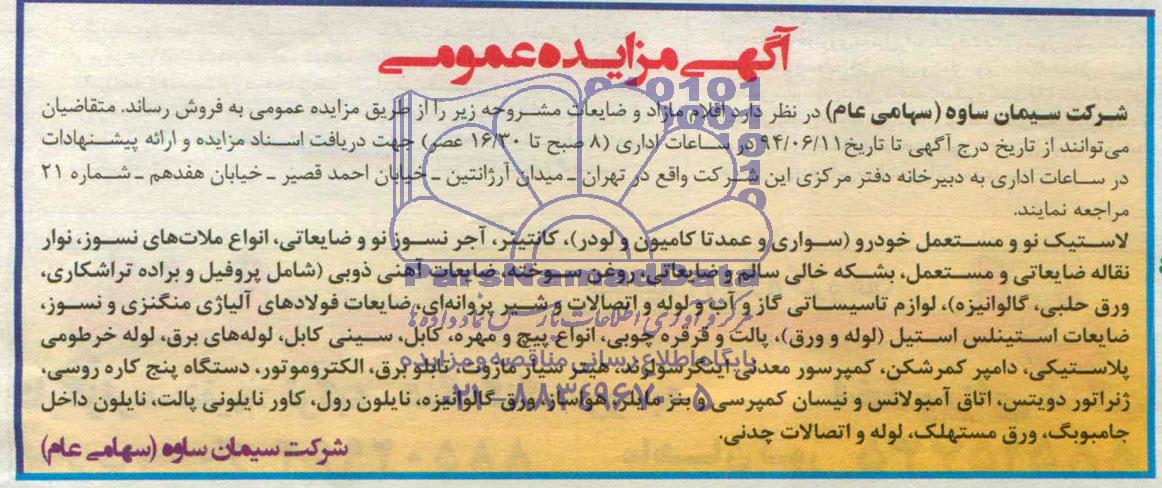 آگهی مزایده عمومی
شرکت سیمان ساوه (سهامی عام) در نظر دارد اقلام مازاد و ضایعات مشروحه زیر را از طریق مزایده عمومی به فروش رساند. متقاضیان
می‌توانند از تاریخ درج آگهی تا تاریخ ۹۴/۰۶/۱۱ در ساعات اداری (۸ صبح تا ۱۶/۳۰ عصر) جهت دریافت اسناد مزایده و ارائه پیشنهادات
در ساعات اداری به دبیرخانه دفتر مرکزی این شرکت واقع در تهران ـ میدان آرژانتین ـ خیابان احمد قصیر ـ خیابان هفدهم ـ شماره ۲۱
مراجعه نمایند.
لاستیک نو و مستعمل خودرو (سواری و عمدتا کامیون و لودر)، کانتینر، آجر نسوز نو و ضایعاتی، انواع ملات‌های نسوز، نوار
نقاله ضایعاتی و مستعمل، بشکه خالی سالم و ضایعاتی، روغن سوخته، ضایعات آهنی ذوبی (شامل پروفیل و براده تراشکاری،
ورق حلبی، گالوانیزه)، لوازم تاسیساتی گاز و آب و لوله و اتصالات و شیر پروانه‌ای، ضایعات فولادهای آلیاژی منگنزی و نسوز،
ضایعات استینلس استیل (لوله و ورق)، پالت و قرقره چوبی، انواع پیچ و مهره، کابل، سینی کابل، لوله‌های برق، لوله خرطومی
پلاستیکی، دامپر کمرشکن، کمپرسور معدنی اینگرسولرند، هیتر سیار مازوت، تابلو برق، الکتروموتور، دستگاه پنج کاره روسی،
ژنراتور دویتس، اتاق آمبولانس و نیسان کمپرسی و بنز مایلر، هواساز، ورق گالوانیزه، نایلون رول، کاور نایلونی پالت، نایلون داخل
جامبوبگ، ورق مستهلک، لوله و اتصالات چدنی.
شرکت سیمان ساوه (سهامی عام)
ParsNamadData
مرکز فرآوری اطلاعات پارس نماد داده‌ها
پایگاه اطلاع رسانی مناقصه و مزایده
۰۲۱-۸۸۳۴۹۶۷۰-۵